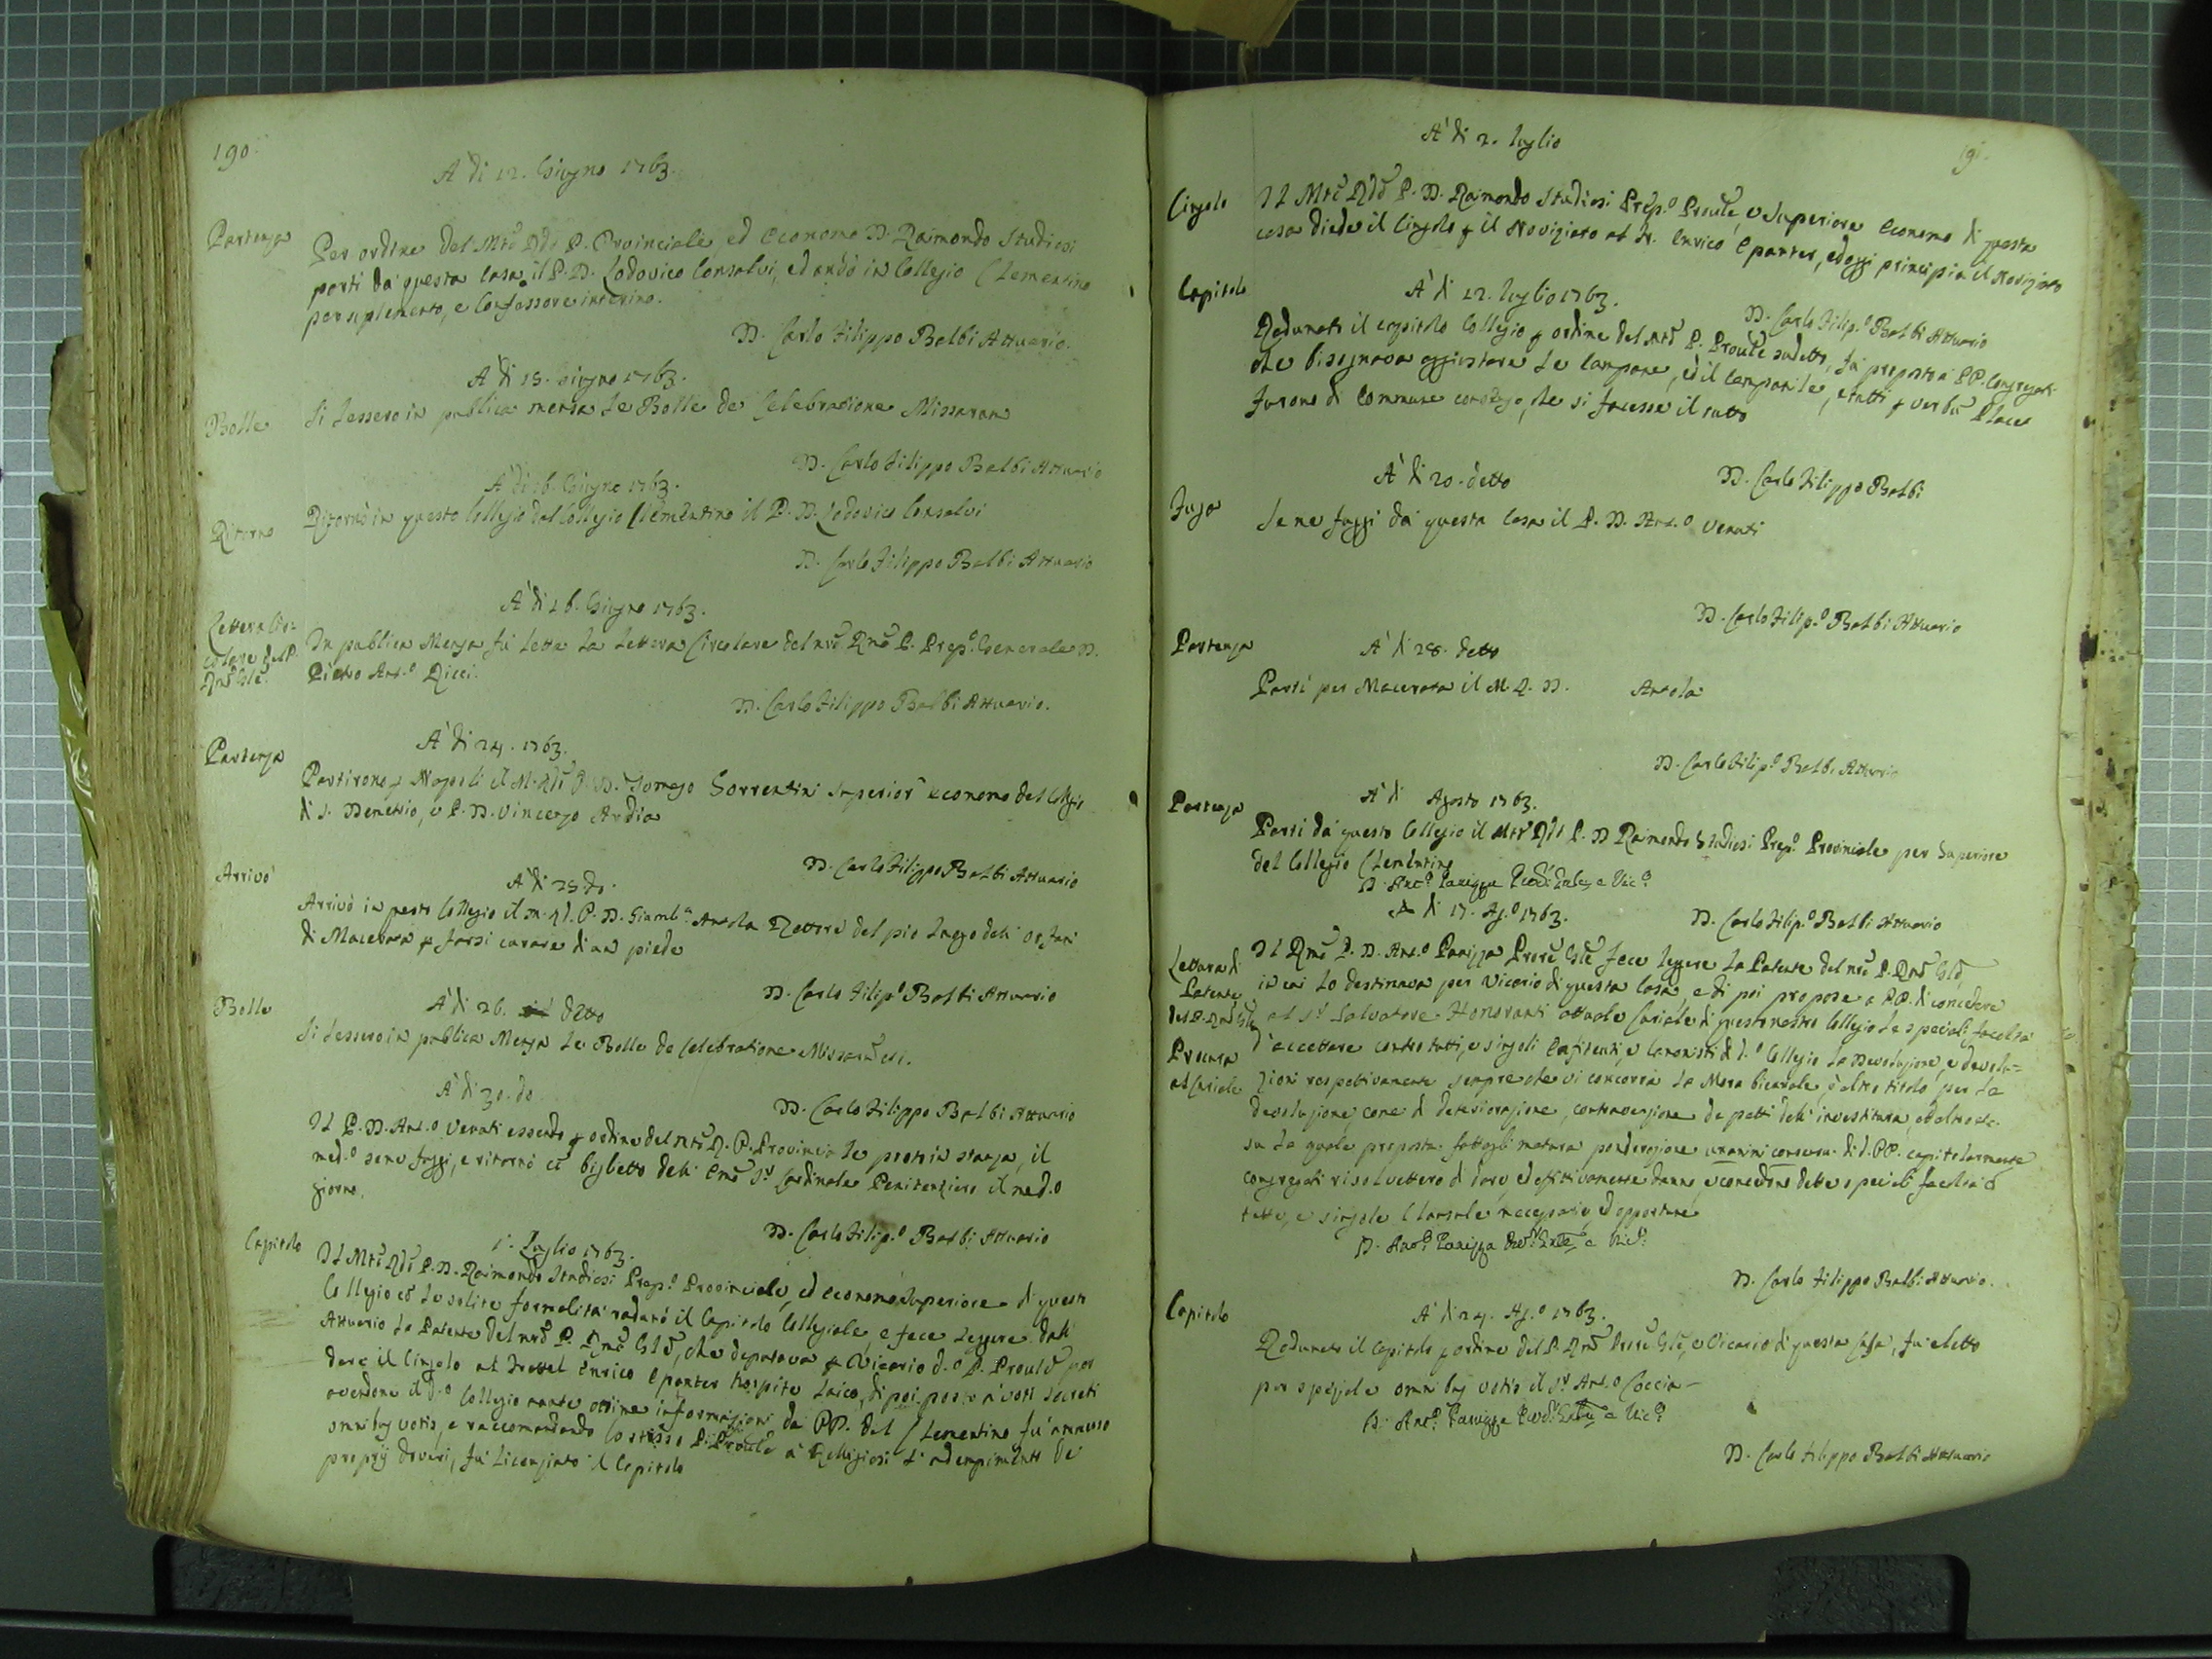 190.
A' di 12. Giugno 1763.
Partenza
Per ordine del Mtõ Rdõ P. Provinciale, ed Economo D. Raimondo Studiosi
partì da questa casa il P. D. Lodovico Consalvi, ed andò in Collegio Clementino
per suplemento, e Confessore interino.
D. Carlo Filippo Balbi Attuario.
A di 15. Giugno 1763.
Bolle
Si lessero in publica mensa le Bolle de Celebratione Missarum
D. Carlo Filippo Balbi Attuario
A' di 16. Giugno 1763.
Ritorno
Ritornò in questo Collegio dal Collegio Clementino il P. D. Lodovico Consalvi
D. Carlo Filippo Balbi Attuario
A' di 16. Giugno 1763.
Lettera Cir=
colare del P.
Rmõ Gle.
In publica Mensa fù letta la lettera Circolare del nrõ Rmõ P. Prep.º Generale D.
Pietro Ant.º Ricci.
D. Carlo Filippo Balbi Attuario.
Partenza
A' di 24. 1763.
Partirono p Napoli il M. Rdõ P. D. Sorrentini Superior Economo del Collegio
di S. Demetrio, e P. D. Vincenzo Ardia
D. Carlo Filippo Balbi Attuario
Arrivò
A' di 25 do.
Arrivò in questo Collegio il M. Rd. P. D. Giamb.ª Arrola Rettore del pio luogo deli Orfani
di Macerata p farsi curare d'un piede
D. Carlo Filip.º Balbi Attuario
Bolle
A' di 26. detto
Si lessero in publica Mensa le Bolle de Celebratione Missarum etc.
A' di 30. do.
D. Carlo Filippo Balbi Attuario
Il P. D. Ant.º Venati essendo p ordine del Mtõ R. P. Provinciale posto in stanza, il
med.º se ne fuggì, e ritornò cõ biglietto deli Emõ Sr Cardinale Penitenziero il med.º
giorno.
D. Carlo Filip.º Balbi Attuario
Capitolo
1. Luglio 1763.
Il Mtõ Rdõ P. D. Raimondo Studiosi Prep.º Provinciale, ed economo Superiore di questo
Collegio cõ le solite formalità radunò il Capitolo Collegiale, e fece leggere dall'
Attuario la Patente del nrõ P. Rmõ Glẽ, che deputava p Vicario d.º P. Proulẽ per
dare il Cingolo al Fratel Enrico Epanter hospite laico, di poi posto a' voti secreti
avendone il d.º Collegio avute ottime informazioni da PP. del Clementino fu ammesso
omnibus votis, e raccomandando lo stesso P. Proulẽ a' Religiosi l'adempimento de
proprij doveri, fu licenziato il Capitolo
191.
A' di 2. luglio
Cingolo
Il Mtõ Rdõ P. D. Raimondo Studiosi Prep.º Proulẽ, e Superiore Economo di questa
casa diede il Cingolo p il Noviziato al Fr. Enrico Epanter, ed oggi principia il Noviziato
D. Carlo Filip.º Balbi Attuario
Capitolo
A' di 12. luglio 1763.
Radunato il capitolo Collegio p ordine del Mtõ P. Proulẽ sudetto, fu proposto a PP. Congregati
che bisognava aggiustare le campane, ed il campanile, e tutti p verbũ Placet
furono di commune consenso, che si facesse il tutto
D. Carlo Filippo Balbi
A' di 20. detto
Fuga
Se ne fuggì da questa casa il P. D. Ant.º Venati
D. Carlo Filip.º Balbi Attuario
Partenza
A' di 28. detto
Partì per Macerata il M. R. D. Arrola
D. Carlo Filip.º Balbi Attuario
A' di Agosto 1763.
Partenza
Partì da questo Collegio il Mtõ Rdõ P. D. Raimondo Studiosi Prep.º Provinciale per Superiore
del Collegio Clementino
D. Ant.º Panizza Vic.º
A di 17. Ag.º 1763.
D. Carlo Filip.º Balbi Attuario
Lettura di
Patente
del P. Rmõ Gle
Il Rmõ P. D. Ant.º Panizza Procrẽ Glẽ fece leggere la Patente del nrõ P. Rmõ Glẽ,
in cui lo destinava per Vicario di questa Casa, e di poi propose a PP. di concedere
al Sr Salvatore Honoranti attuale Curiale di questo nostro Collegio le speciali facoltà
Procura
al Curiale
d'accettare contro tutti, e singoli Enfiteuti, e Canonisti di d.º Collegio la Devoluzione, e devolu=
zioni respettivamente sempre che vi concorra la Mora bicanale, ò altro titolo per la
devoluzione, come di deteriorazione, contravenzione de patti deli investitura, ed altro etc.
su la quale proposta fattagli matura ponderazione unanimi consensu di d. PP. capitolarmente
congregati risolvettero di dare, ed effettivamente danno, e concedono dette speciali facoltà cõ
tutte, e singole Clausule necessarie, ed opportune
D. Ant.º Panizza Vic.º
D. Carlo Filippo Balbi Attuario.
Capitolo
A' di 24. Ag.º 1763.
Radunato il Capitolo p ordine del P. Rmõ Procrẽ Glẽ, e Vicario di questa Casa, fu eletto
per speziale omnibus votis il Sr Ant.º Coccia
D. Ant.º Panizza Vic.º
D. Carlo Filippo Balbi Attuario